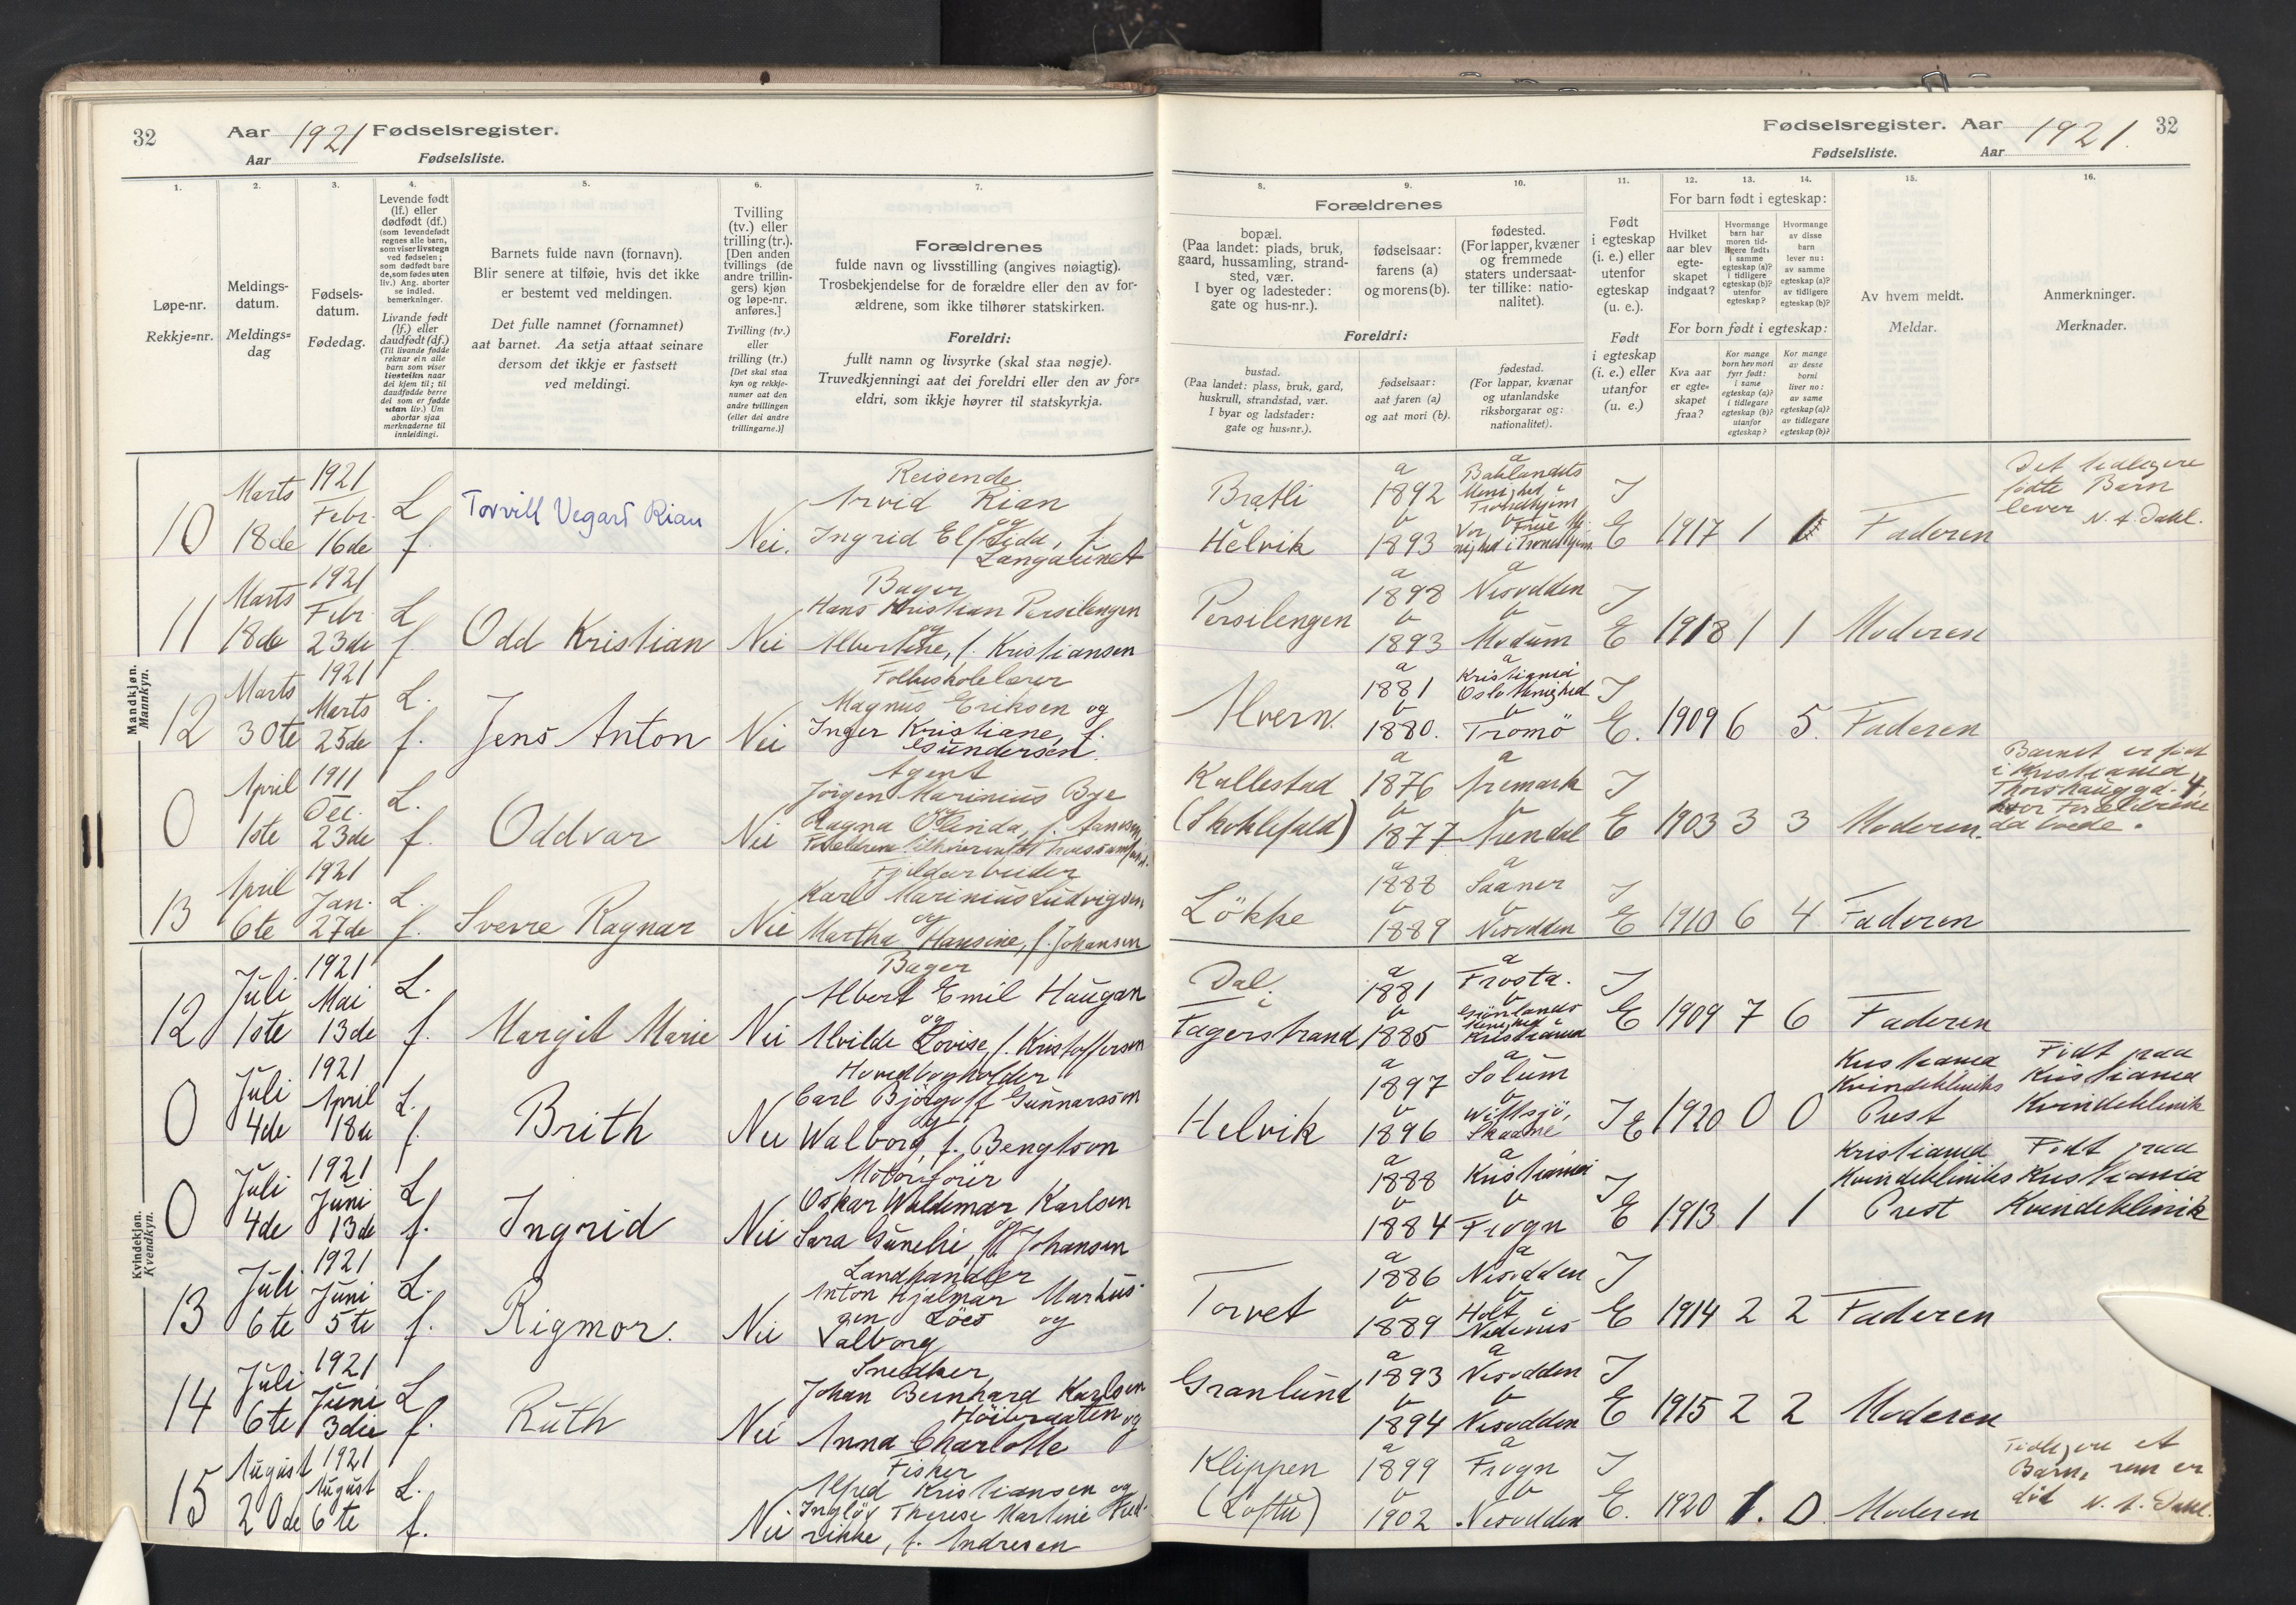 32
Aar 1921 Fødselsregister.
Aar
Fødselsliste.
1.
Løpe-nr.
Rekkje=nr.
2.
Meldings-
datum.
Meldings=
dag
3.
Fødsels-
datum.
Fødedag.
4.
Levende født
(lf.) eller
dødfødt (df.)
(som levendefødt
regnes alle barn,
som viser livstegn
ved fødselen;
som dødfødt bare
de, som fødes uten
liv.) Ang. aborter
se indled.
bemerkninger.
Livande født
(lf.) eller
daudfødt (df.)
(Til livande fødde
reknar ein alle
barn som viser
livsteikn naar
dei kjem til; til
daudfødde berre
dei som er fødde
utan liv.) Um
abortar sjaa
merknaderne til
innleidingi.
5.
Barnets fulde navn (fornavn).
Blir senere at tilføie, hvis det ikke
er bestemt ved meldingen.
Det fulle namnet (fornamnet)
aat barnet. Aa setja attaat seinare
dersom det ikkje er fastsett
ved meldingi.
6.
Tvilling
(tv.) eller
trilling (tr.).
[Den anden
tvillings (de
andre trillin-
gers) kjøn
og løpe-nr.
anføres.]
Tvilling (tv.)
eller
trilling (tr.)
[Det skal staa
kyn og rekkje-
numer aat den
andre tvillingen
(eller dei andre
trillingarne.)]
7.
Forældrenes
fulde navn og livsstilling (angives nøiagtig).
Trosbekjendelse for de forældre eller den av for-
ældrene, som ikke tilhører statskirken.
Foreldri:
fullt namn og livsyrke (skal staa nøgje).
Truvedkjenningi aat dei foreldri eller den av for=
eldri, som ikkje høyrer til statskyrkja.
Mandkjøn.
Mannkyn.
10
Marts
18de
1921
Febr.
16de
L
f.
Torvill Vegard Rian
Nei.
Reisende
Arvid Rian
og
Ingrid Elfrida, f.
Langaunet
11
Marts
18de
1921
Febr.
23de
L
f.
Odd Kristian
Nei
Bager
Hans Kristian Persilengen
og
Albertine, f. Kristiansen
12
Marts
30te
1921
Marts
25de
L.
f.
Jens Anton
Nei
Folkeskolelærer
Magnus Eriksen og
Inger Kristiane, f.
Gundersen.
0
April
1ste
1911
Dec.
23de
L.
f.
Oddvar
Nei
Agent
Jörgen Marinius Bye
og
Ragna Olinda, f. Hansen
13
April
6te
1921
Jan.
27de
L.
f.
Sverre Ragnar
Nei
Fjeldarbeider
Karl Marinius Ludvigsen
og
Martha Hansine, f. Johansen
Kvindekjøn.
Kvendkyn.
12
Juli
1ste
1921
Mai
13de
L.
f.
Margit Marie
Nei
Bager
Albert Emil Haugan
og
Alvilde Lovise, f. Kristoffersen
0
Juli
4de
1921
April
18de
L.
f.
Brith
Nei
Hovedbogholder
Carl Björgulf Gunnarsson
og
Walborg, f. Bengtson
0
Juli
4de
1921
Juni
13de
L
f.
Ingrid
Nei
Motorförer
Oskar Waldemar Karlsen
og
Sara Gunelie, f. Johansen
13
Juli
6te
1921
Juni
5te
L.
f.
Rigmor.
Nei
Landhandler
Anton Hjalmar Markus-
sen Löes og
Valborg
14
Juli
6te
1921
Juni
3die
L
f.
Ruth
Nei
Snedker
Johan Bernhard Karlsen
Höibraaten og
Anna Charlotte
15
August
20de
1921
August
6te
L.
f.
Nei
Fisker
Alfred Kristiansen og
Ingløv Therese Martine Hed-
rikke, f. Andresen
Fødselsregister. Aar 1921.
32
Fødselsliste.
Aar
Forældrenes
8.
bopæl.
(Paa landet: plads, bruk,
gaard, hussamling, strand-
sted, vær.
I byer og ladesteder:
gate og hus-nr.).
9.
fødselsaar:
farens (a)
og morens (b).
10.
fødested.
(For lapper, kvæner
og fremmede
staters undersaat-
ter tillike: natio-
nalitet).
Foreldri:
bustad.
(Paa landet: plass, bruk, gard,
huskrull, strandstad, vær.
I byar og ladstader:
gate og hus=nr.).
fødselsaar:
aat faren (a)
og aat mori (b).
fødestad.
(For lappar, kvænar
og utanlandske
riksborgarar og:
nationalitet).
11.
Født
i egteskap
(i. e.) eller
utenfor
egteskap
(u. e.).
Født
i egteskap
(i. e.) eller
utanfor
(u. e.)
12.
13.
14.
For barn født i egteskap:
Hvilket
aar blev
egte-
skapet
indgaat?
Hvormange
barn har
moren tid-
ligere født,
i samme
egteskap (a)?
i tidligere
egteskap (b)?
utenfor
egteskap?
Hvormange
av disse
barn
lever nu:
av samme
egteskap (a)?
av tidligere
egteskap (b)?
For born født i egteskap:
Kva aar
er egte=
skapet
fraa?
Kor mange
born hev mori
fyrr født:
i same
egteskap (a)?
i tidlegare
egteskap (b)?
utanfor
egteskap?
Kor mange
av desse
borni
liver no:
av same
egteskap (a)?
av tidlegare
egteskap (b)?
15.
Av hvem meldt.
Meldar.
16.
Anmerkninger.
Merknader.
Bratli
Helvik
a
1892
b
1893
a
Baklandets
Menighed i
Trondhjem
b
Vor Frue Me-
nighed i Trondhjem
I
E
1917
1
1
Faderen
Det tidligere
födte Barn
lever
N. A. Dahl.
Persilengen
a
1898
b
1893
a
Nesodden
b
Modum
I
E
1918
1
1
Moderen
Alvern.
a
1881
b
1880.
a
Kristiania
Oslo Menighed
b
Tromö
I
E.
1909
6
5.
Faderen
Kallestad
(Skoklefald)
a
1876
b
1877
a
Aremark
b
Arendal
I
E
1903
3
3
Moderen.
Barnet er födt
i Kristiania
Thorshauggd. 4,
hvor Forældrene
da boede.
Lökke
a
1888
b
1889
a
Saaner
b
Nesodden
I
E
1910
6
4
Faderen
Dal
i
Fagerstrand
a
1881
b
1885
a
Frosta.
b
Grönlands
Menighed i
Kristiania
I
E
1909
7
6
Faderen
Helvik
a
1897
b
1896
a
Solum
b
Wittsjö,
Skaane
I
E
1920
0
0
Kristiania
Kvindekliniks
Prest
Födt paa
Kristiania
Kvindeklinik
a
1888
b
1884
a
Kristiania
b
Frogn
I
E
1913
1
1
Kristiania
Kvindekliniks
Prest
Födt paa
Kristiania
Kvindeklinik
Torvet
a
1886
b
1889
a
Nesodden
b
Holt i
Nedenes
I
E
1914
2
2
Faderen
Granlund
a
1893
b
1894
a
Nesodden
b
Nesodden
I
E
1915
2
2
Moderen
Klippen
(Loftu)
a
1899
b
1902
a
Frogn
b
Nesodden
I
E.
1920
1.
0
Moderen
Tidligere et
Barn, som er
död N. A. Dahl.